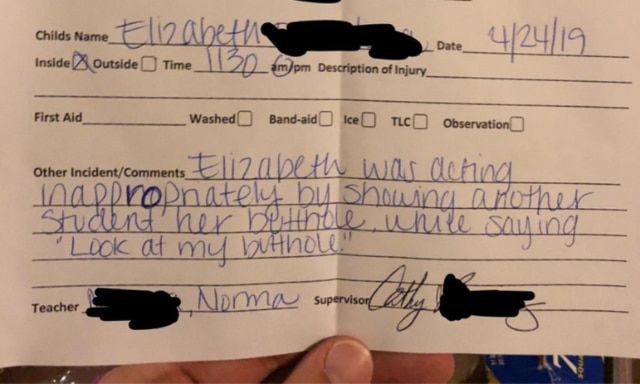 Childs Name Elizabeth Date 4/24/19
Inside Outside Time 1130 am/pm Description of Injury
First Aid Washed Band-aid Ice TLC Observation
Other Incident/Comments Elizabeth was acting
inappropriately by showing another
student her butthole, while saying
"Look at my butthole."
Teacher , Norma Supervisor Cathy